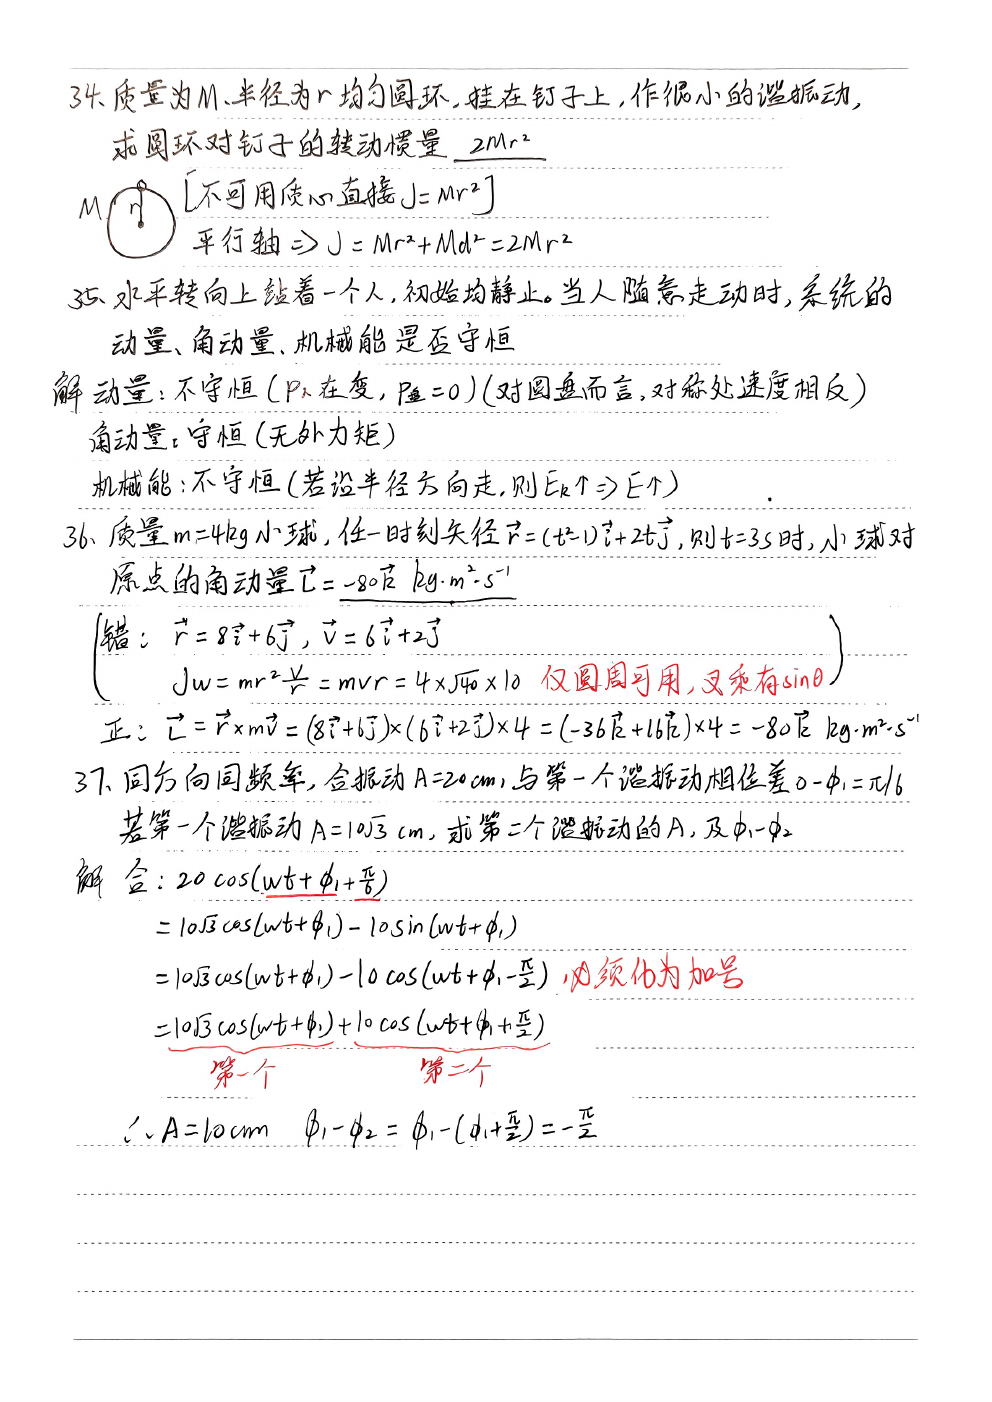 34、质量为M、半径为r均匀圆环,挂在钉子上,作很小的谐振动,
求圆环对钉子的转动惯量 2Mr²
M r [不可用质心直接J=Mr²]
平行轴⇒J=Mr²+Md²=2Mr²
35、水平转向上站着一个人,初始均静止。当人随意走动时,系统的
动量、角动量、机械能是否守恒
解 动量:不守恒(P人在变,P盘=0)(对圆盘而言,对称处速度相反)
角动量:守恒(无外力矩)
机械能:不守恒(若沿半径方向走,则Ek↑⇒E↑)
36、质量m=4kg小球,任一时刻矢径r⃗=(t²-1)i⃗+2tj⃗,则t=3s时,小球对
原点的角动量L⃗=-80k⃗ kg·m²·s⁻¹
(错: r⃗=8i⃗+6j⃗, v⃗=6i⃗+2j⃗
Jw=mr² v/r=mvr=4×√40×10 仅圆周可用,叉乘有sinθ)
正: L⃗=r⃗×mv⃗=(8i⃗+6j⃗)×(6i⃗+2j⃗)×4=(-36k⃗+16k⃗)×4=-80k⃗ kg·m²·s⁻¹
37、同方向同频率,合振动A=20cm,与第一个谐振动相位差0-ϕ₁=π/6
若第一个谐振动A=10√3 cm,求第二个谐振动的A,及ϕ₁-ϕ₂
解 合:20cos(wt+ϕ₁+π/6)
=10√3cos(wt+ϕ₁)-10sin(wt+ϕ₁)
=10√3cos(wt+ϕ₁)-10cos(wt+ϕ₁-π/2),必须化为加号
=10√3cos(wt+ϕ₁)+10cos(wt+ϕ₁+π/2)
第一个 第二个
∴A=10cm ϕ₁-ϕ₂=ϕ₁-(ϕ₁+π/2)=-π/2